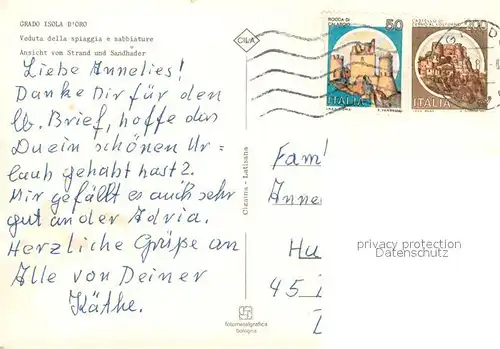 GRADO ISOLA D'ORO
Veduta della spiaggia e sabbiature
Ansicht vom Strand und Sandbader
Liebe Annelies!
Danke Dir für den
lb. Brief, hoffe das
Du ein schönen Ur-
laub gehabt hast?
Mir gefällt es auch sehr
gut an der Adria.
Herzliche Grüße an
Alle von Deiner
Käthe.
CILA
Cicsima - Latisana
fotometalgrafica
bologna
ROCCA DI
CALASCIO
50
ITALIA
CASTELLO DI
CERRO AL VOLTURNO
200
ITALIA
Fam
Anne
Hu
45
privacy protection
Datenschutz